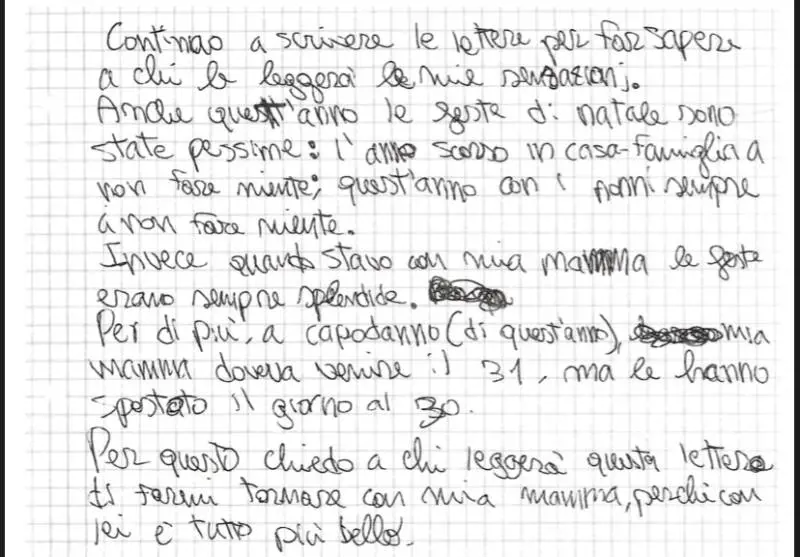 Continuo a scrivere le lettere per far sapere
a chi le leggerà le mie sensazioni.
Anche quest'anno le feste di natale sono
state pessime: l'anno scorso in casa-famiglia a
non fare niente; quest'anno con i nonni sempre
a non fare niente.
Invece quando stavo con mia mamma le feste
erano sempre splendide.
Per di più, a capodanno (di quest'anno), mia
mamma doveva venire il 31, ma le hanno
spostato il giorno al 30.
Per questo chiedo a chi leggerà questa lettera
di farmi tornare con mia mamma, perchè con
lei è tutto più bello.